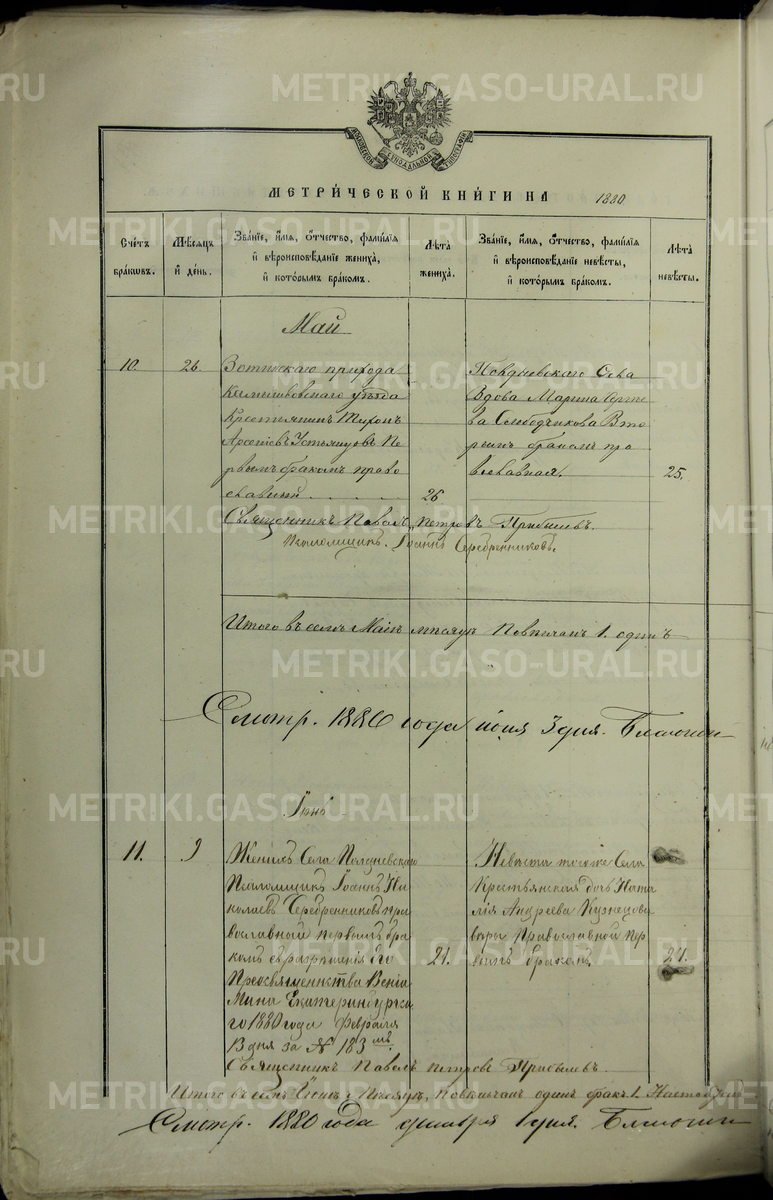 МЕТРИ́ЧЕСКОЙ КНИ́ГИ НА 1880
Сче́тъ бра́кѡвъ.
Мѣ́сяцъ и҆ де́нь.
Зва́нїе, и҆́мя, ѻ҆́тчество, фами́лїя и҆ вѣроисповѣ́данїе жениха̀, и҆ кото́рымъ бра́комъ.
Лѣ́та жениха̀.
Зва́нїе, и҆́мя, ѻ҆́тчество, фами́лїя и҆ вѣроисповѣ́данїе невѣ́сты, и҆ кото́рымъ бра́комъ.
Лѣ́та невѣ́сты.
Май
10.
26.
Вотинскаго природа
уѣзда
Крестьянинъ Тихонъ
Арсеніевъ Устьянцовъ Пе
рвымъ бракомъ право
славный
26
Села
Вдова Марина Серге
ва Слободчикова Вто
рымъ бракомъ пра
вославная.
25.
Священникъ Павелъ Петровъ Прибылевъ.
Псаломщикъ Іоаннъ Серебренниковъ.
Итого въ семъ Маіѣ мѣсяцѣ Повѣнчан 1. одинъ
Смотр. 1880 года іюня 3 дня. Благочин
Іюнь
11.
9
Женихъ Села Полдневскаго
Псаломщикъ Іоаннъ Ни
колаевъ Серебренниковъ пра
вославный первымъ бра
комъ съ разрѣшенія Его
Преосвященнства Веніа
мина Екатеринбургска
го 1880 года февраля
13 дня за № 183мъ
21.
Невѣста тогоже Села
Крестьянская дочь Ната
лія Андреева Кузнецова
вѣры Православной пер
вымъ бракомъ.
21.
Священникъ Павелъ Петровъ Прибылевъ.
Итого въ семъ Іюнѣ Мѣсяцѣ, повѣнчан одинъ бракъ 1.
Смотр. 1880 года декабря 1 дня. Благочин
METRIKI.GASO-URAL.RU